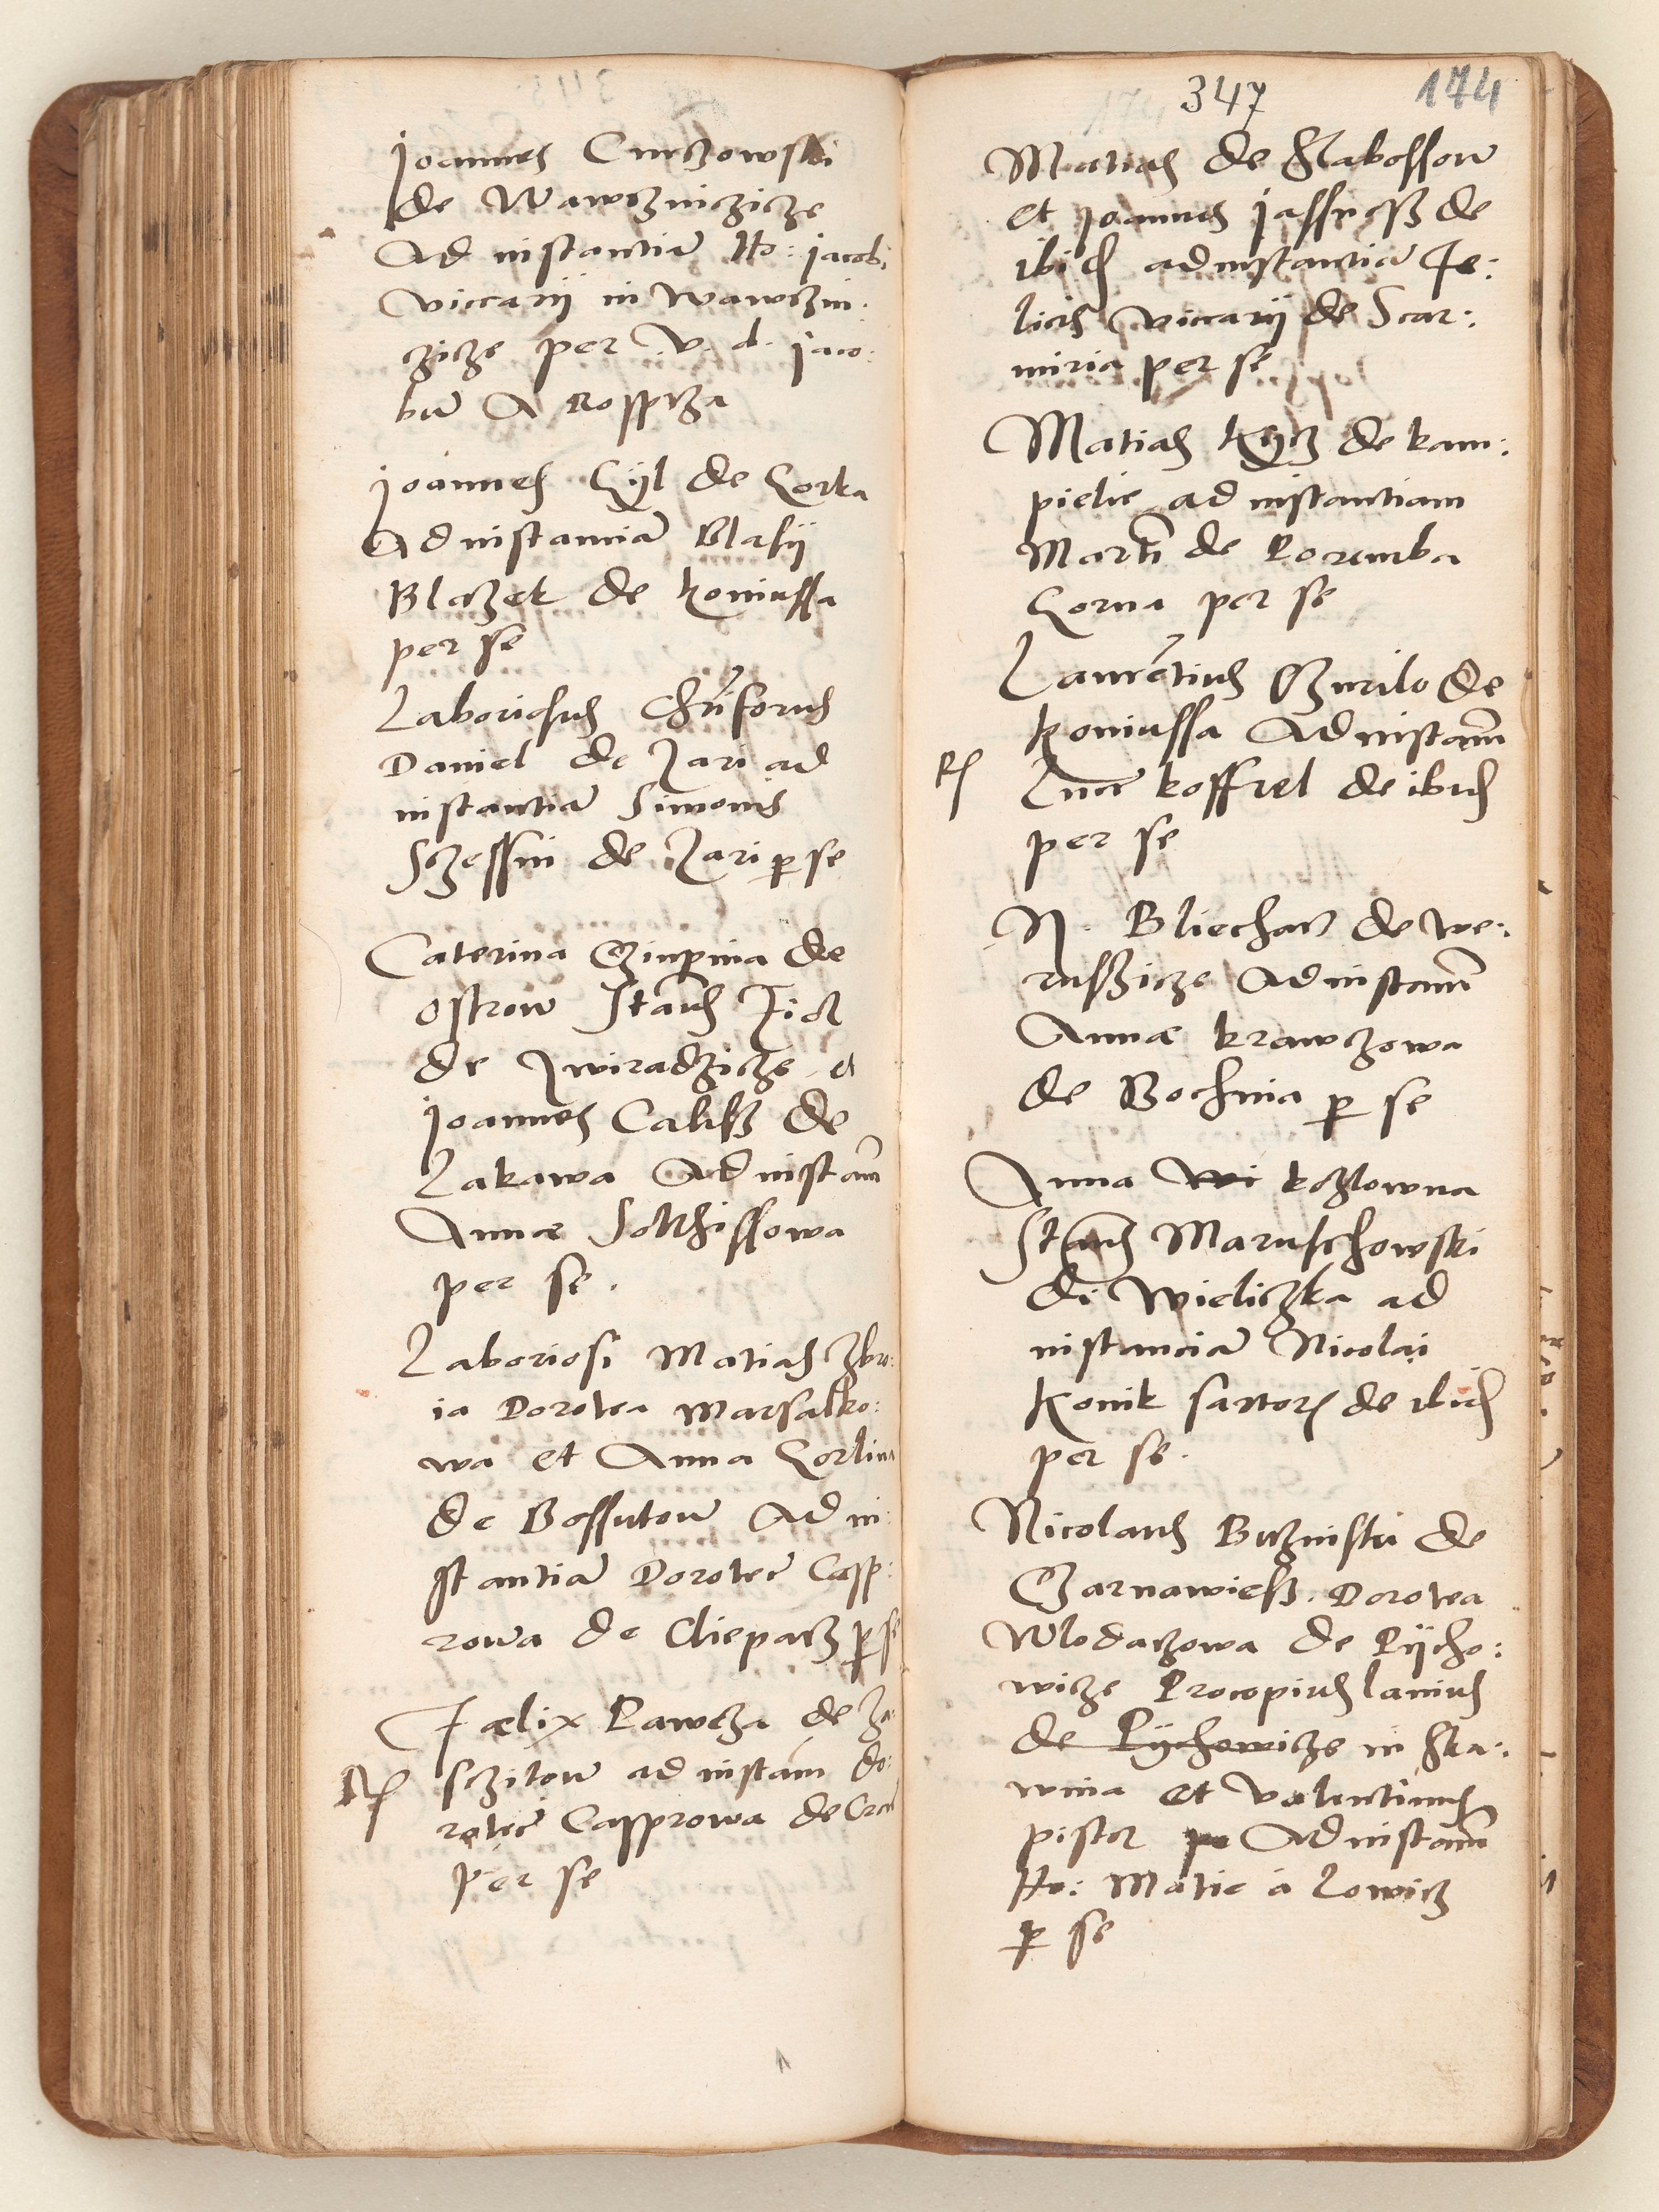 Joannes Curzowski
de Wawrzniczicze
Ad instantiā Ho: Jacobi
viccarij in Wawrzin.
czicze per V. d. Jaco:
bū A Rosprza
Joannes Gijl de Gorka
Ad instanciā Blasij
Blazek de Koniussa
per se
Laboriosus Christoforus
Daniel de Zari ad
instantiā Simonis
Sczessni de Zari p se
Caterina de
Ostrow Stans Fiol
de Zwiradzicze et
Joannes Calisz de
Lakawa Ad instam
Annæ Solthissowa
per se.
Laboriosi Matias Zbro:
ia Dorotea Marsalko:
wa et Anna Gorlina
de Bossutow Ad in:
stantiā Doroteæ Casp:
rowa de Cliepacz p se
Fælix Pawcza de Za
sczitow ad instam do:
roteæ Casprowa de Crac
per se
347
174
Matias de Slabossow
et Joannes Jassnesz de
ibid ad instantiā Fe:
licis viccarij de Scar:
miria per se
Matias Kijcz de kam:
pielie ad instantiam
Martī de Poremba
Gorna per se
Laurētius Gzurilo de
Koniussa Ad instam
Rs
Lucæ Koffrel de ibid
per se
N. Bliechacz de We:
russzicze Ad instam
Annæ Krawczowa
de Bochnia p se
Anna Wi Kozlowna
Stans Maruschowski
de Wieliczka ad
instanciā Nicolai
Konik sartoris de ibid
per se.
Nicolaus Buczinski de
Czarnawiesz. Dorotea
Wlodaczowa de Pijcho:
wicze Procopius lanius
de Pijchowicze in Ska:
wina et Valentinus
pistor pe Ad instam
Ho: Matiæ a Lowicz
p se